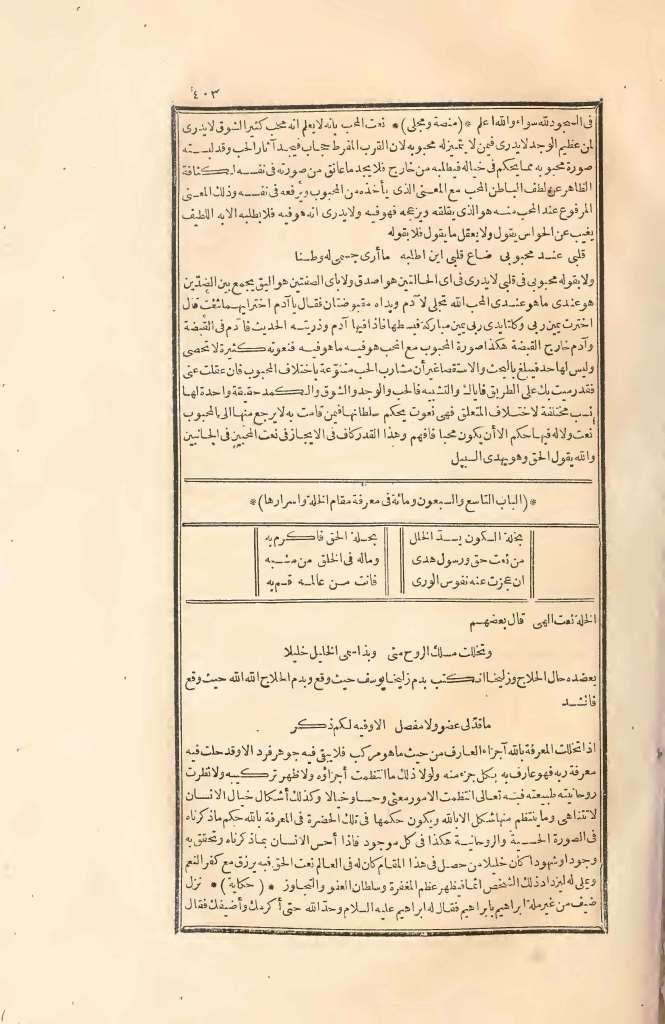 ٤٠٣
فى السجود لله سواء والله اعلم *(منصة ومجلى)* نعت المحب بانه لا يعلم انه محب كثير الشوق لا يدرى
لمن عظيم الوجد لا يدرى فيمن لا يتميز له محبوبه لان القرب المفرط حجاب فيجد آثار الحب وقد لبسته
صورة محبوبه مما يحكم فى خياله فيطلبه من خارج فلا يجد ما عانق من صورته فى نفسه لكثافة
الظاهر عن لطف الباطن المحب مع المعنى الذى يأخذه من المحبوب ويرفعه فى نفسه وذلك المعنى
المرفوع عند المحب منه هو الذى يقلقه ويزعجه فهو فيه ولا يدرى انه هو فيه فلا يطلبه الا به اللطيف
يغيب عن الحواس يقول ولا يعقل ما يقول فلا يقوله
قلبى عند محبوبى ضاع قلبى اين اطلبه ما أرى جسمى له وطنا
ولا يقوله محبوبى فى قلبى لا يدرى فى اى الحالتين هو اصدق ولا باى الصفتين هو اليق يجمع بين الضدّين
هو عندى ما هو عندى المحب الله تجلى لآدم ويداه مقبوضتان فقال يا آدم اختر ايهما شئت قال
اخترت يمين ربى وكلتا يدى ربى يمين مباركة فبسطها فاذا فيها آدم وذريته الحديث فآدم فى القبضة
وآدم خارج القبضة هكذا صورة المحبوب مع المحب هو فيه ما هو فيه فنعوته كثيرة لا تحصى
وليس لها حد فيبلغ بالبحث والاستقصا غير أن مشارب الحب متنوّعة باختلاف المحبوب فان عقلت عنى
فقد رميت بك على الطريق فاياك والتشبيه فالحب والوجد والشوق والكمد حقيقة واحدة لها
نسب مختلفة لاختلاف المتعلق فهى نعوت يحكم سلطانها فيمن قامت به لا يرجع منها الى المحبوب
نعت ولا له فيها حكم الا أن يكون محبا فافهم وهذا القدر كاف فى الايجاز فى نعت المحبين فى الجانبين
والله يقول الحق وهو يهدى السبيل
*(الباب التاسع والسبعون ومائة فى معرفة مقام الخلة واسرارها)*
بخلة الكون يسدّ الخلل بخلة الحق فاكرم به
من نعت حق ورسول هدى وماله فى الخلق من مشبه
ان عجزت عنه نفوس الورى فانت من عالمه قم به
الخلة نعت الهى قال بعضهم
وتخللت مسلك الروح منى وبذا سمى الخليل خليلا
يعضده حال الحلاج وزليخا انكتب بدم زليخا يوسف حيث وقع وبدم الحلاج الله الله حيث وقع
فانشد
ما قدّ لى عضو ولا مفصل الا وفيه لكم ذكر
اذا تخللت المعرفة بالله أجزاء العارف من حيث ما هو مركب فلا يبقى فيه جوهر فرد الا وقد حلت فيه
معرفة ربه فهو عارف به بكل جزء منه ولولا ذلك ما انتظمت أجزاؤه ولا ظهر تركيبه ولا نظرت
روحانيته طبيعته فبه تعالى انتظمت الامور معنى وحسا وخيالا وكذلك أشكال خيال الانسان
لا تتناهى وما ينتظم منها شكل الا بالله ويكون حكمها فى تلك الحضرة فى المعرفة بالله حكم ما ذكرناه
فى الصورة الحسية والروحانية هكذا فى كل موجود فاذا أحس الانسان بما ذكرناه وتحقق به
وجودا وشهودا كان خليلا من حصل فى هذا المقام كان له فى العالم نعت الحق فبه يرزق مع كفر النعم
ويملى له ليزداد ذلك الشخص اثما فيظهر عظم المغفرة وسلطان العفو والتجاوز *(حكاية)* نزل
ضيف من غير ملة ابراهيم بابراهيم فقال له ابراهيم عليه السلام وحد الله حتى أكرمك وأضيفك فقال